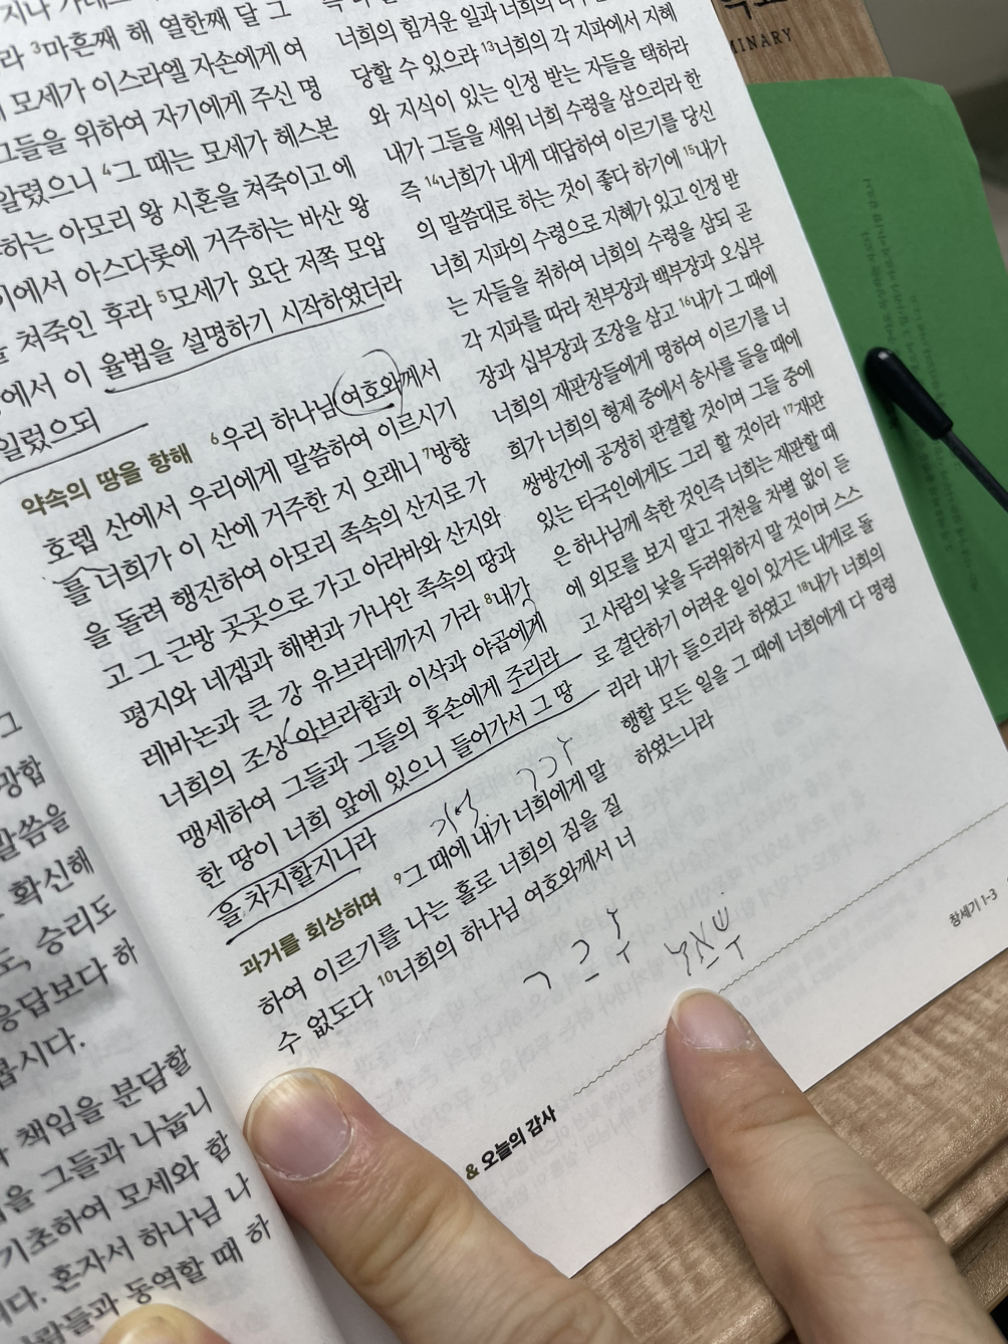 3마흔째 해 열한째 달 그
모세가 이스라엘 자손에게 여
그들을 위하여 자기에게 주신 명
알렸으니 4그 때는 모세가 헤스본
하는 아모리 왕 시혼을 쳐죽이고 에
에서 아스다롯에 거주하는 바산 왕
쳐죽인 후라 5모세가 요단 저쪽 모압
에서 이 율법을 설명하기 시작하였더라
일렀으되
약속의 땅을 향해 6우리 하나님 여호와께서
호렙 산에서 우리에게 말씀하여 이르시기
를 너희가 이 산에 거주한 지 오래니 7방향
을 돌려 행진하여 아모리 족속의 산지로 가
고 그 근방 곳곳으로 가고 아라바와 산지와
평지와 네겝과 해변과 가나안 족속의 땅과
레바논과 큰 강 유브라데까지 가라 8내가
너희의 조상 아브라함과 이삭과 야곱에게
맹세하여 그들과 그들의 후손에게 주리라
한 땅이 너희 앞에 있으니 들어가서 그 땅
을 차지할지니라
과거를 회상하며 9그 때에 내가 너희에게 말
하여 이르기를 나는 홀로 너희의 짐을 질
수 없도다 10너희의 하나님 여호와께서 너
너희의 힘겨운 일과 너희의
당할 수 있으랴 13너희의 각 지파에서 지혜
와 지식이 있는 인정 받는 자들을 택하라
내가 그들을 세워 너희 수령을 삼으리라 한
즉 14너희가 내게 대답하여 이르기를 당신
의 말씀대로 하는 것이 좋다 하기에 15내가
너희 지파의 수령으로 지혜가 있고 인정 받
는 자들을 취하여 너희의 수령을 삼되 곧
각 지파를 따라 천부장과 백부장과 오십부
장과 십부장과 조장을 삼고 16내가 그 때에
너희의 재판장들에게 명하여 이르기를 너
희가 너희의 형제 중에서 송사를 들을 때에
쌍방간에 공정히 판결할 것이며 그들 중에
있는 타국인에게도 그리 할 것이라 17재판
은 하나님께 속한 것인즉 너희는 재판할 때
에 외모를 보지 말고 귀천을 차별 없이 듣
고 사람의 낯을 두려워하지 말 것이며 스스
로 결단하기 어려운 일이 있거든 내게로 돌
리라 내가 들으리라 하였고 18내가 너희의
행할 모든 일을 그 때에 너희에게 다 명령
하였느니라
& 오늘의 감사
창세기 1-3
그
망합
말씀을
확신해
승리도
응답보다 하
책임을 분담할
그들과 나눕니
기초하여 모세와 함
혼자서 하나님 나
동역할 때 하
MINARY